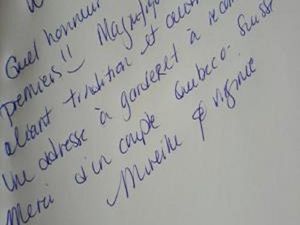 Quel honneur
premiers!!
alliant tradition et
Une adresse à garder et à
Merci d'un couple Québeco-Suisse
Mireille & Virginie